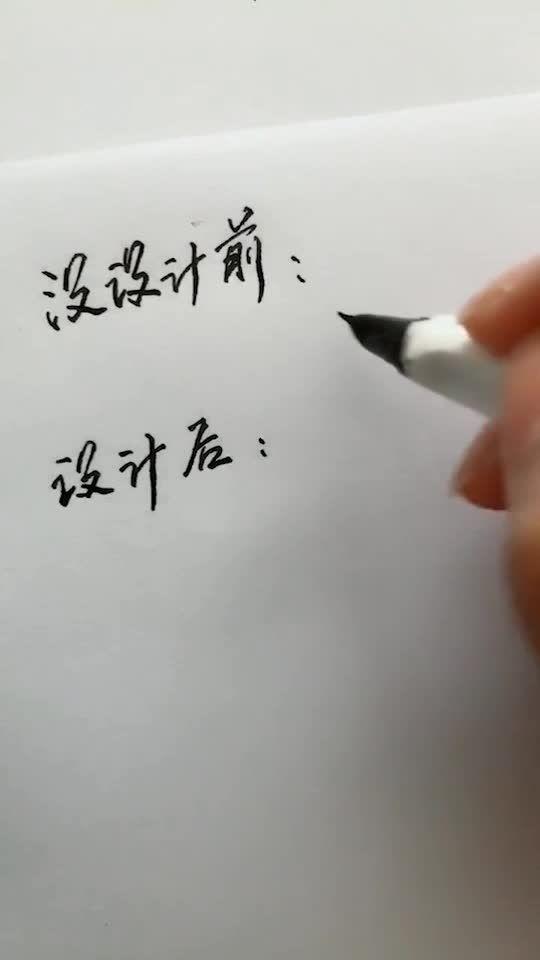 没设计前：
设计后：